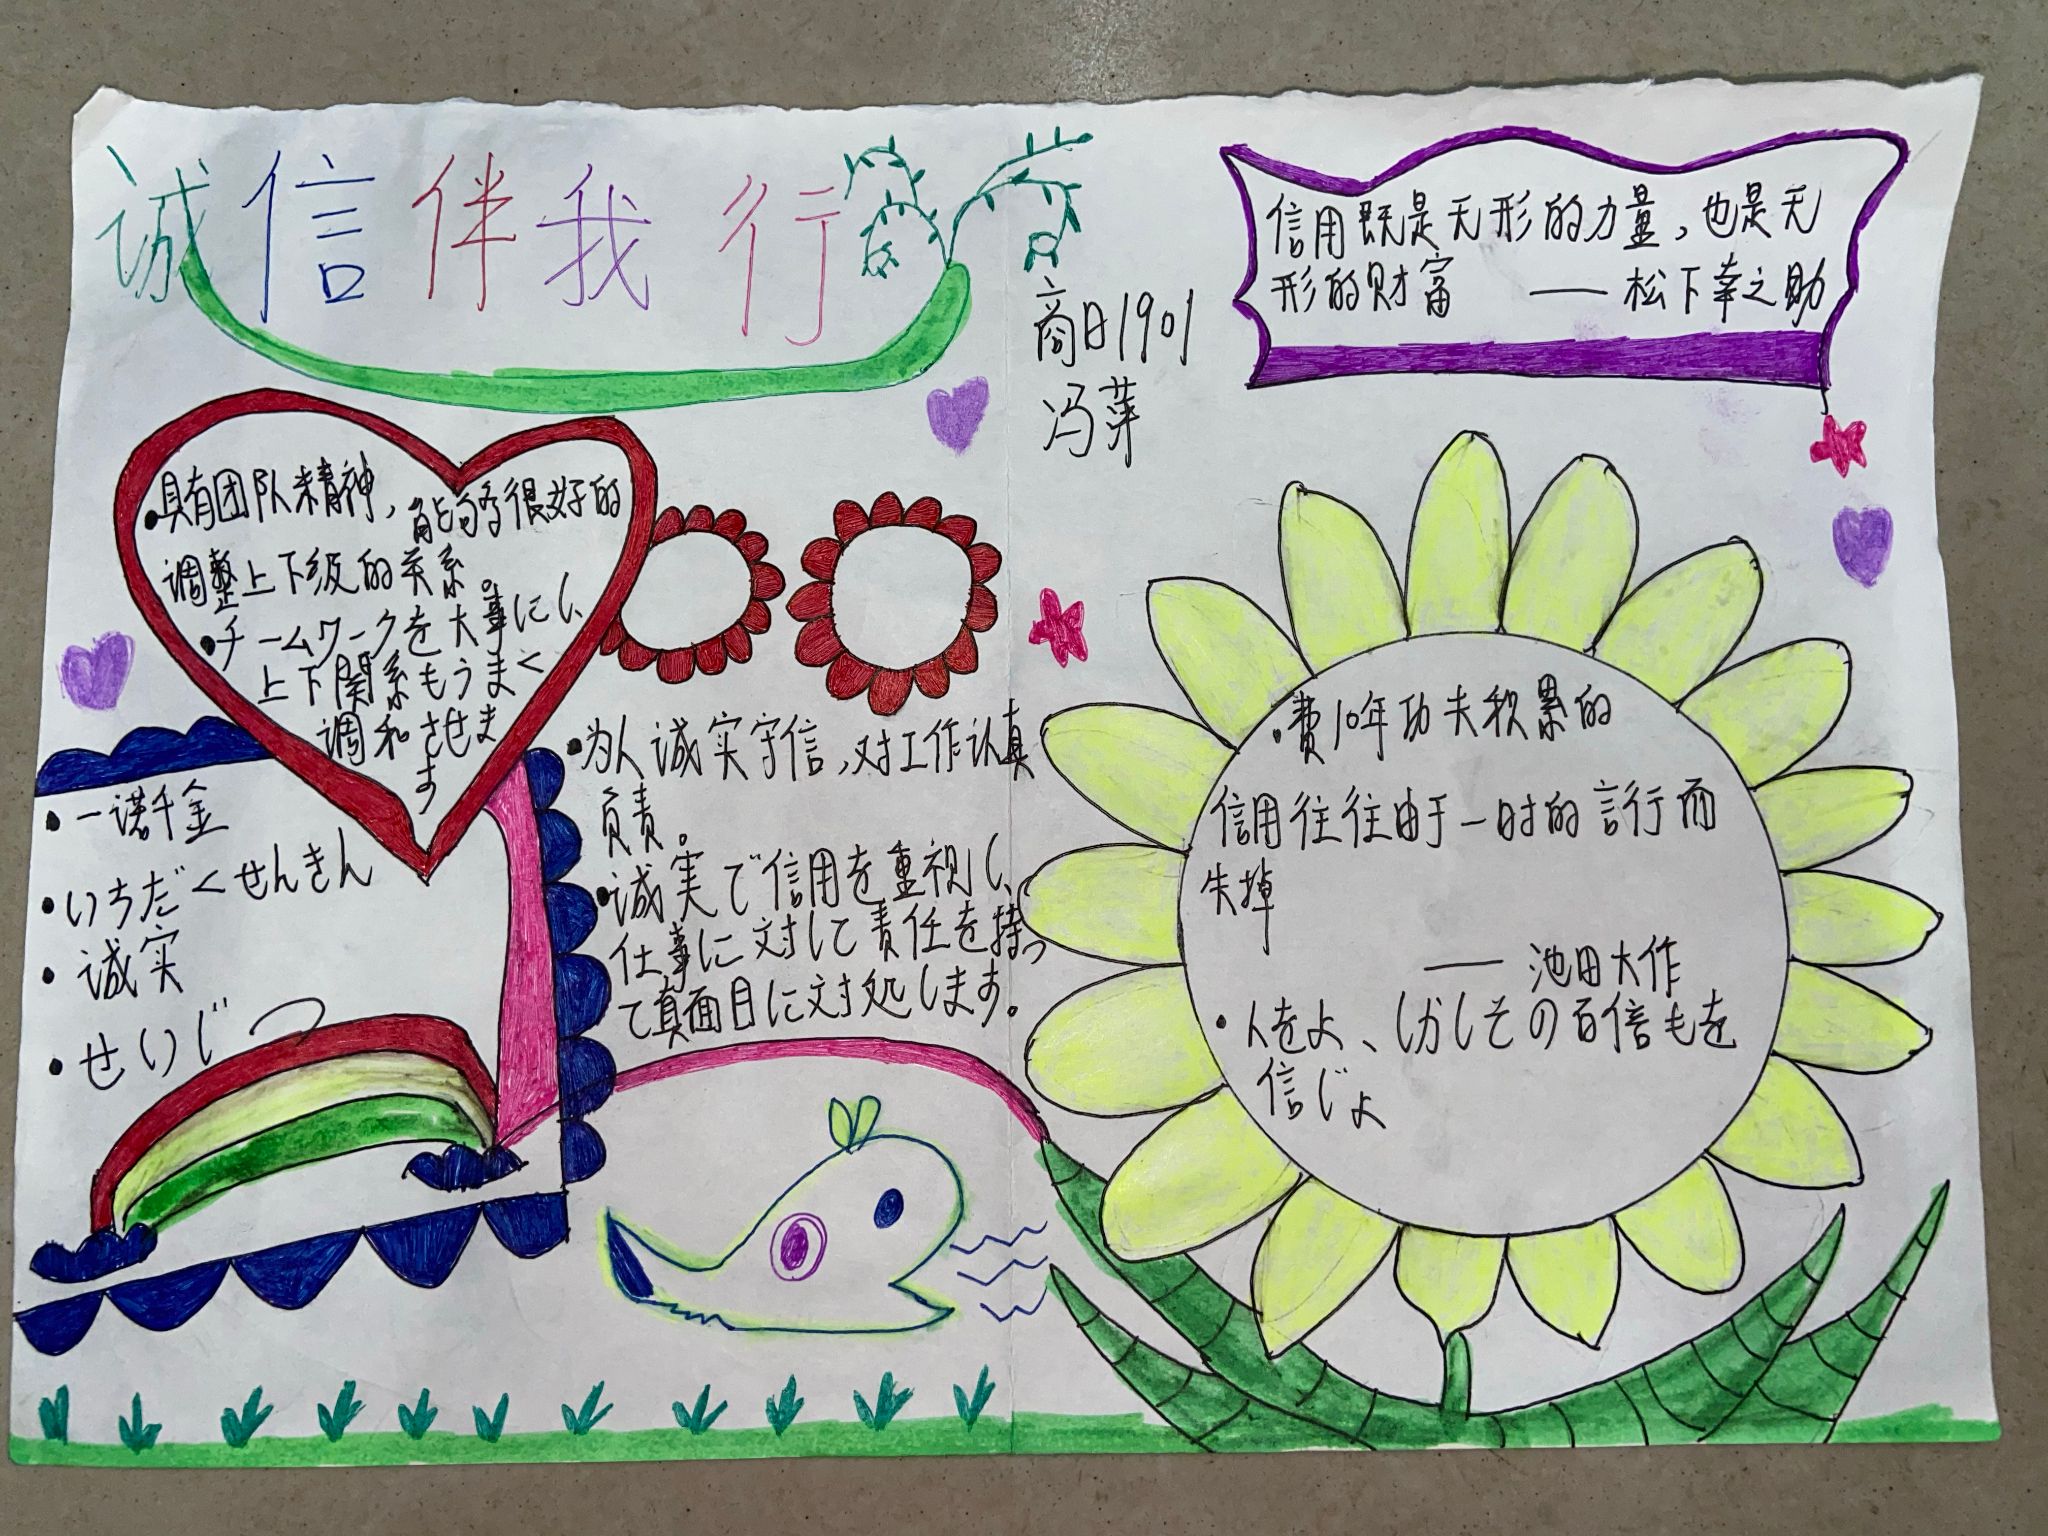 诚信伴我行
商日1901
冯萍
信用既是无形的力量，也是无
形的财富 —— 松下幸之助
·具有团队精神，能够很好的
调整上下级的关系。
·チームワークを大事にし、
上下関係もうまく
調和させま
す
·一诺千金
·いちだくせんきん
·诚实
·せいじつ
·为人诚实守信，对工作认真
负责。
·誠実で信用を重視し、
仕事に対して責任を持っ
て真面目に対処します。
·费10年功夫积累的
信用往往由于一时的言行而
失掉
—— 池田大作
·人をよ、しかしその百倍もを
信じよ